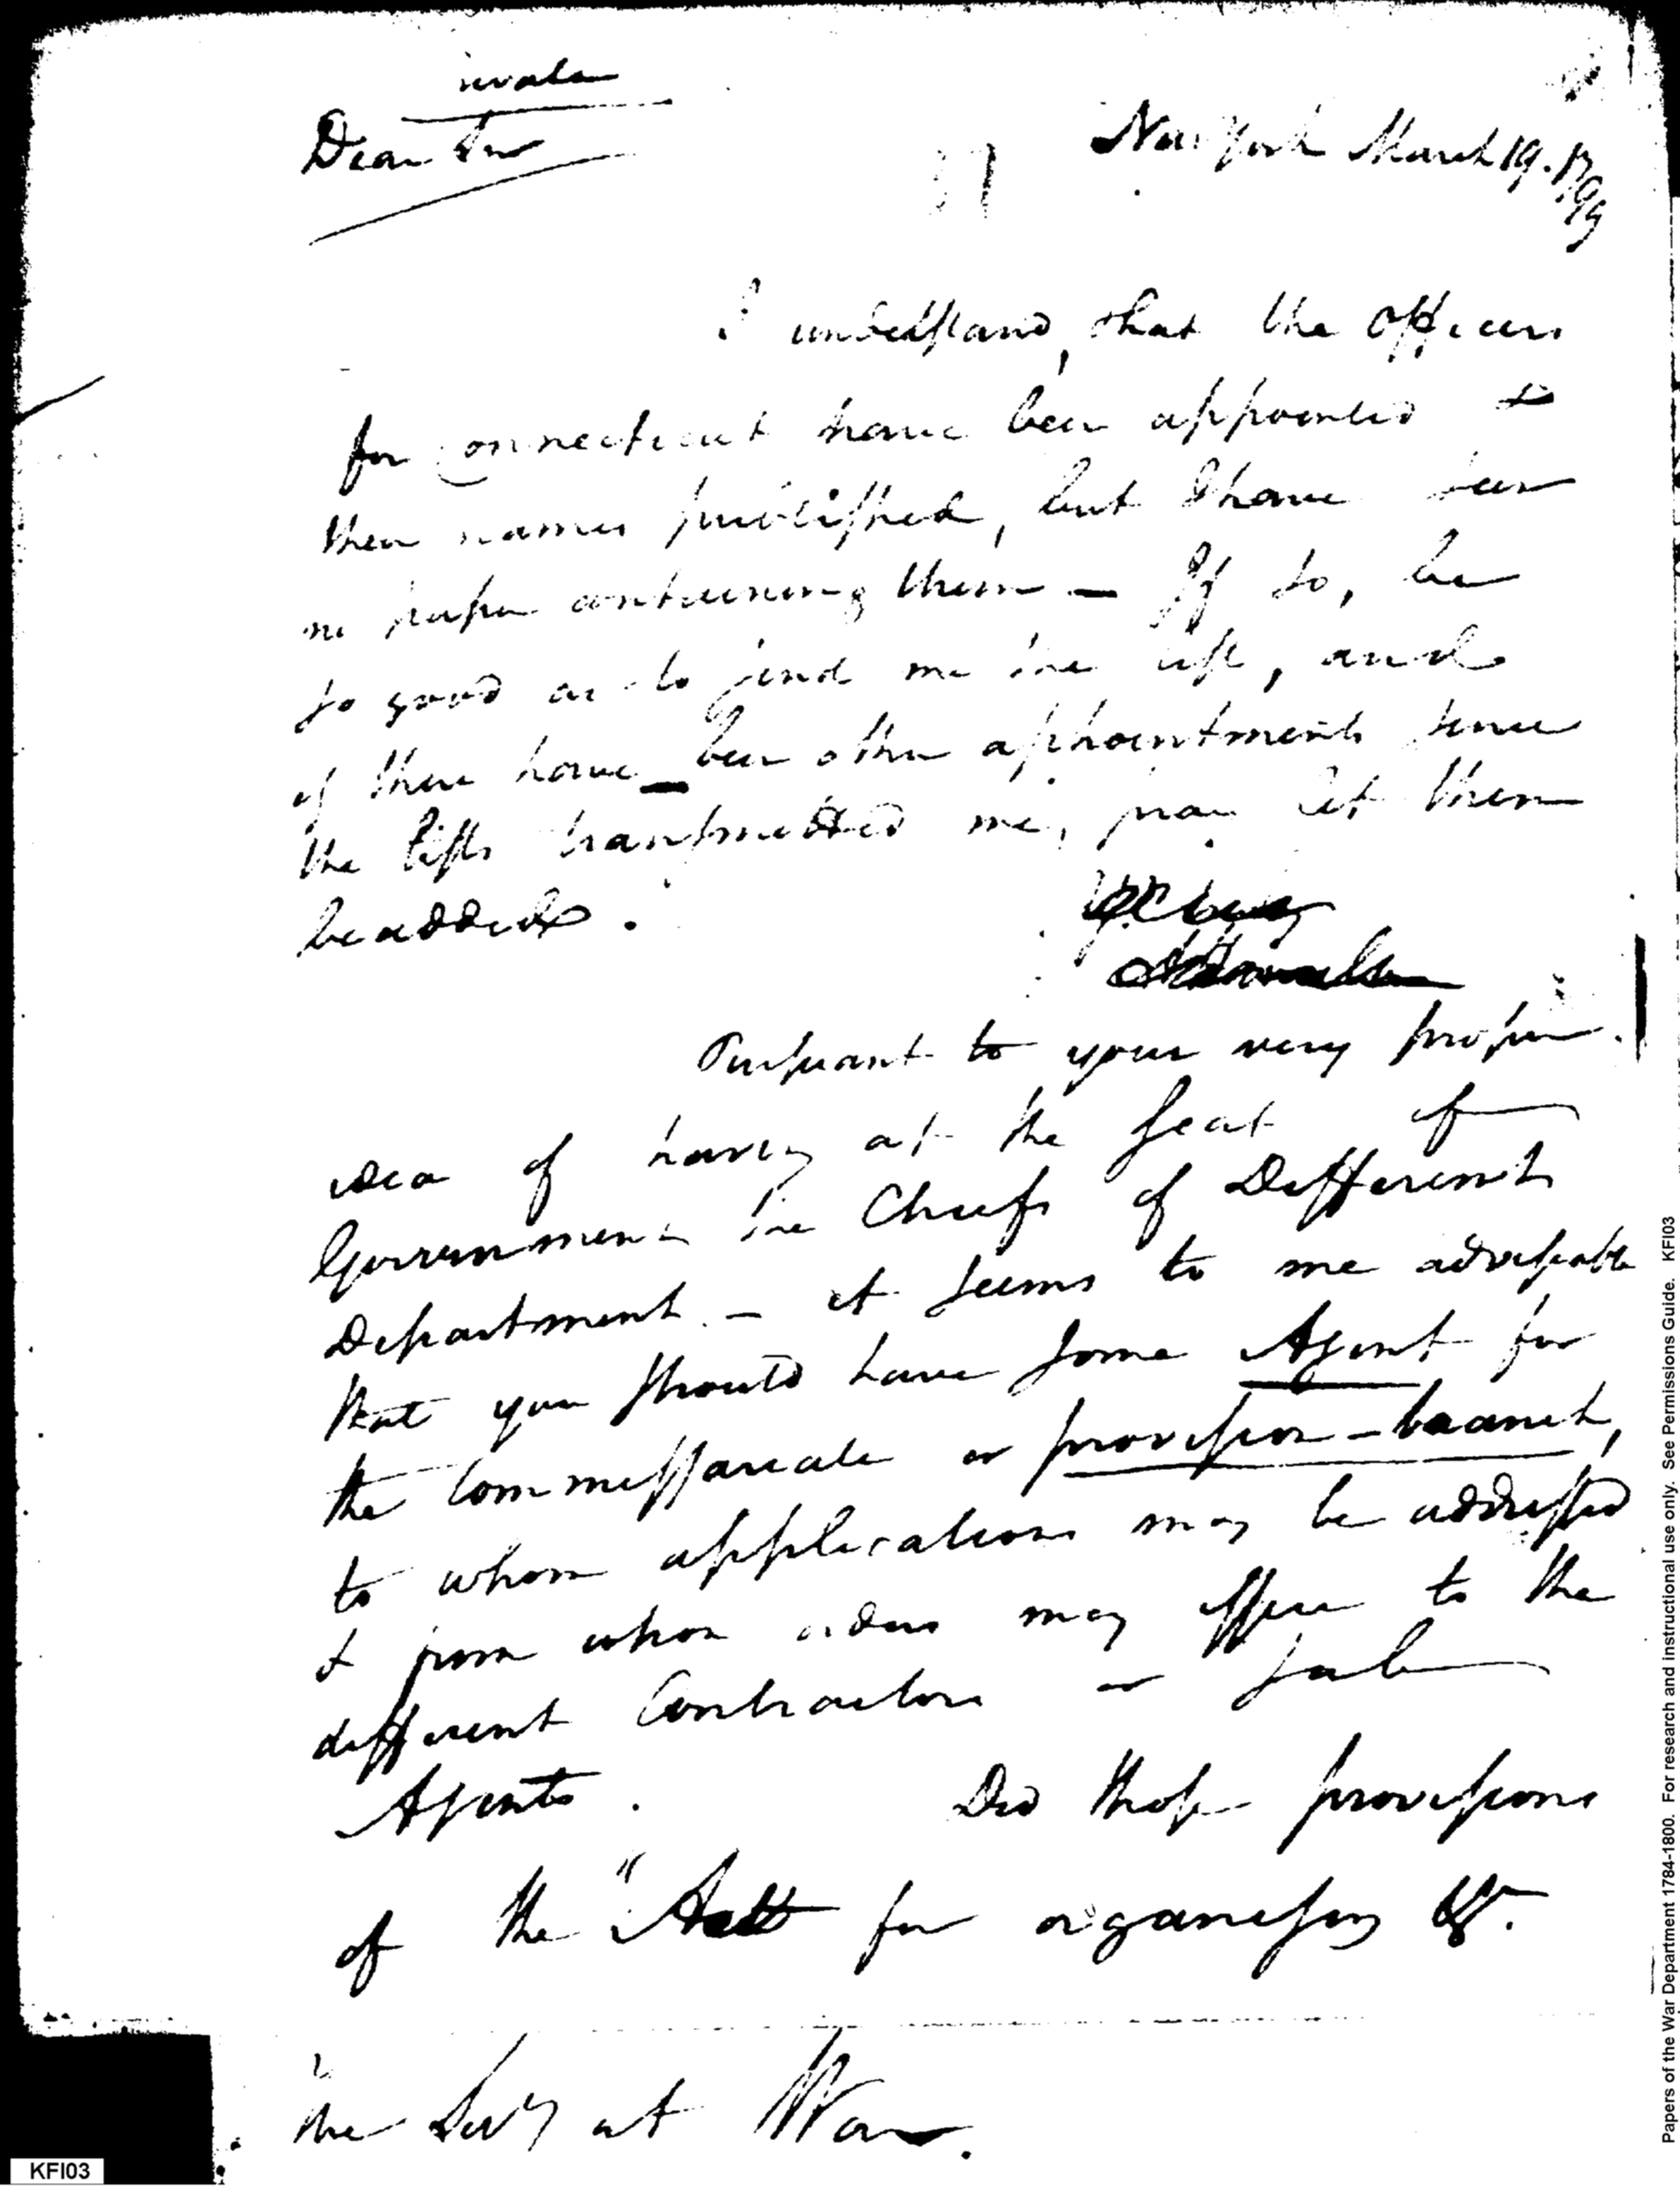 Private
Dear Sir
New York March 19. 1799
I understand, that the officers
for Connecticut have been appointed &
their names published, but I have seen
no paper containing them — If so, be
so good as to send me the list, and
if there have been other appointments since
the lists transmitted me, pray let them
be added.
A Hamilton
Pursuant to your very proper
idea of having at the seat of
Government the Chiefs of Different
Department — it seems to me adviseable
that you should have some Agent for
the Commissariate or provision-branch,
to whom applications may be addressed
& from whom orders may issue to the
different Contractors or sub
Agents. Did those provisions
of the "Act for organising &c.
The Secy at War.
KFI03
Papers of the War Department 1784-1800. For research and instructional use only. See Permissions Guide. KFI03